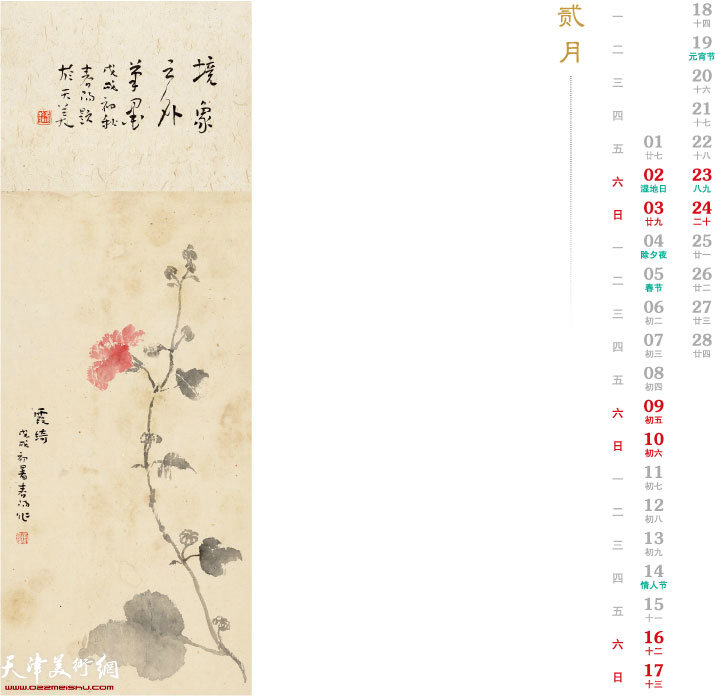 境象
之外
笔墨
戊戌初秋
春阳题
於天美
霞绮
戊戌初暑春阳作
天津美術網
www.022meishu.com
贰
月
一
二
三
四
五
六
日
一
二
三
四
五
六
日
一
二
三
四
五
六
日
01
廿七
02
湿地日
03
廿九
04
除夕夜
05
春节
06
初二
07
初三
08
初四
09
初五
10
初六
11
初七
12
初八
13
初九
14
情人节
15
十一
16
十二
17
十三
18
十四
19
元宵节
20
十六
21
十七
22
十八
23
八九
24
二十
25
廿一
26
廿二
27
廿三
28
廿四